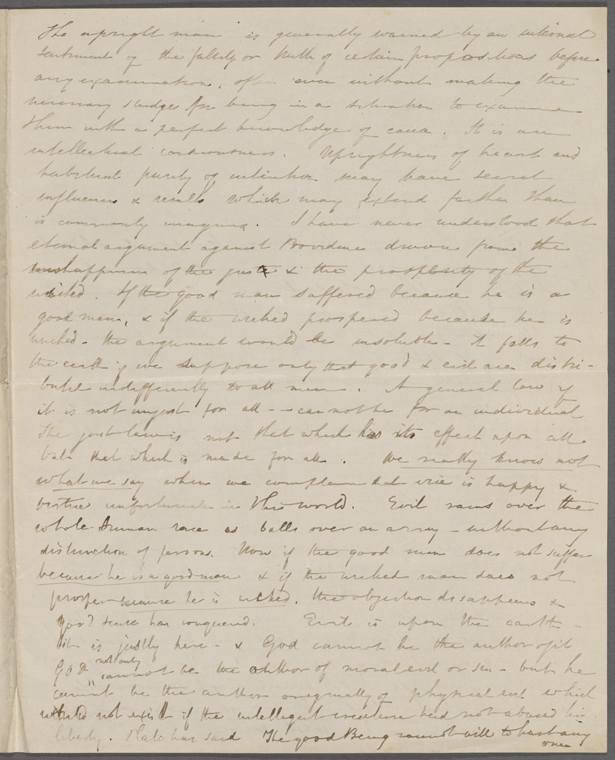 The upright man is generally warned by an internal
Sentiment of the falsity or truth of certain propositions before
any examination, often even without making the
necessary studies for being in a situation to examine
them with a perfect knowledge of cause. It is an
intellectual consciousness. Uprightness of heart and
habitual purity of intention may have secret
influences & results which may extend farther than
is commonly imagined. I have never understood that
eternal argument against Providence drawn from the
unhappiness of the just & the prosperity of the
wicked. If the good man suffered because he is a
good man, & if the wicked prospered because he is
wicked - the argument would be insoluble - it falls to
the earth if we suppose only that good & evil are distri-
buted indifferently to all men. A general law if
it is not unjust for all - cannot be for an individual
The just law is not that which has its effect upon all
but that which is made for all. We really know not
what we say when we complain that vice is happy &
virtue unfortunate in this world. Evil rains over the
whole human race as balls over an army - without any
distinction of persons. Now if the good man does not suffer
because he is a good man & if the wicked man does not
prosper because he is wicked, the objection disappears &
good sense has conquered. Evil is upon the earth -
it is justly here - & God cannot be the author of it
God not only cannot be the author of moral evil or sin - but he
cannot be the author originally of physical evil which
would not exist if the intelligent creature had not abused his
liberty. Plato has said The good Being cannot will to hurt any
one